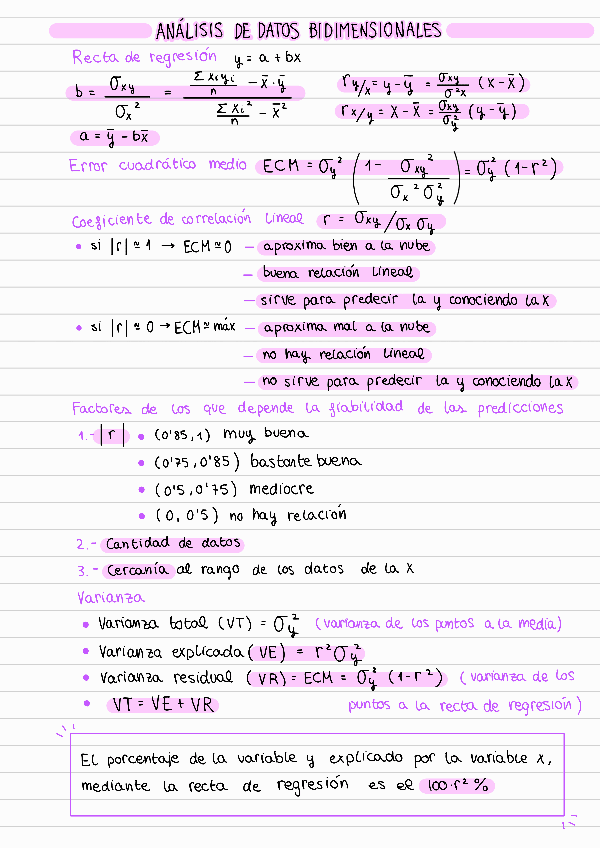 ANÁLISIS DE DATOS BIDIMENSIONALES
Recta de regresión y = a + bx
b = σxy / σx² = (Σ xi yi / n − x̄·ȳ) / (Σ xi² / n − x̄²)
r y/x = y − ȳ = σxy / σ²x (x − x̄)
r x/y = x − x̄ = σxy / σy² (y − ȳ)
a = ȳ − bx̄
Error cuadrático medio ECM = σy² (1 − σxy² / σx² σy²) = σy² (1−r²)
Coeficiente de correlación lineal r = σxy / σx σy
• si |r| ≃ 1 → ECM ≃ 0 — aproxima bien a la nube
— buena relación lineal
— sirve para predecir la y conociendo la x
• si |r| ≃ 0 → ECM ≃ máx — aproxima mal a la nube
— no hay relación lineal
— no sirve para predecir la y conociendo la x
Factores de los que depende la fiabilidad de las predicciones
1.- |r| • (0'85, 1) muy buena
• (0'75, 0'85) bastante buena
• (0'5, 0'75) mediocre
• (0, 0'5) no hay relación
2.- Cantidad de datos
3.- Cercanía al rango de los datos de la x
Varianza
• Varianza total (VT) = σy² (varianza de los puntos a la media)
• Varianza explicada (VE) = r² σy²
• Varianza residual (VR) = ECM = σy² (1−r²) (varianza de los
• VT = VE + VR puntos a la recta de regresión)
El porcentaje de la variable y explicado por la variable x,
mediante la recta de regresión es el 100·r² %